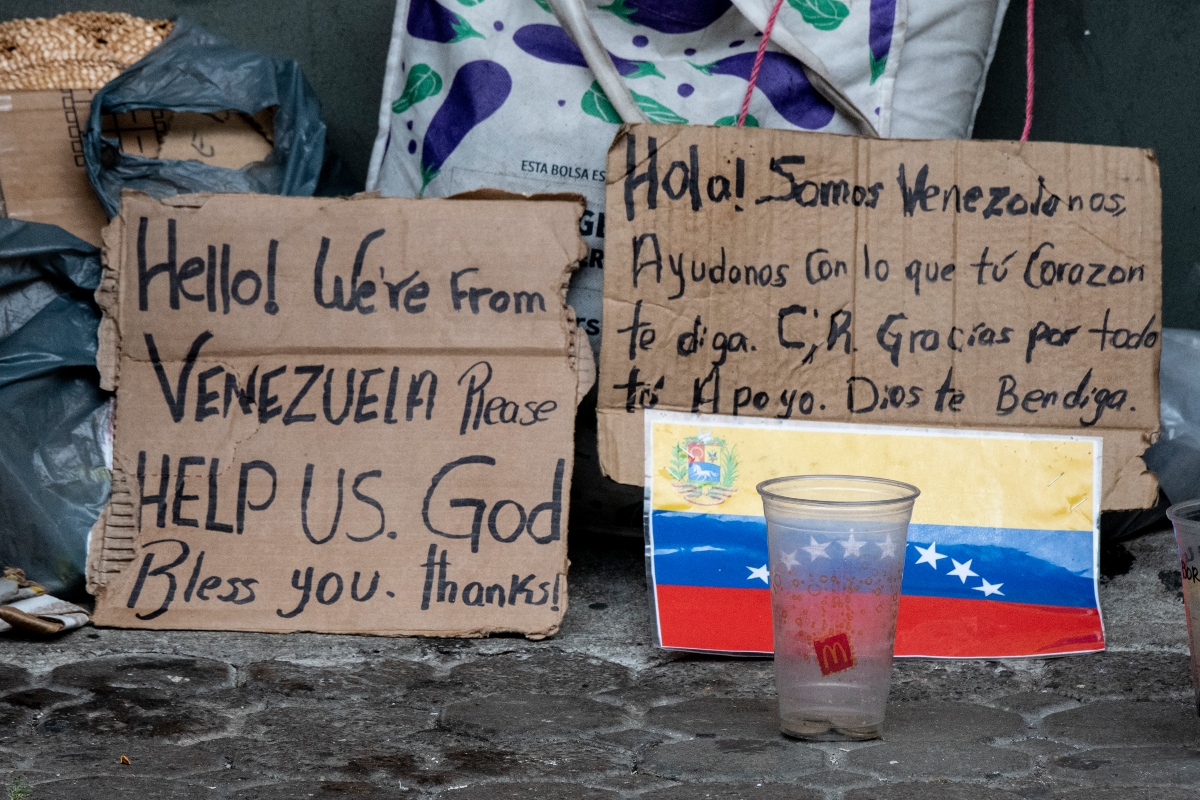 Hello! We're From
VENEZUELA Please
HELP US. God
Bless you. thanks!
ESTA BOLSA ES
Hola! Somos Venezolanos,
Ayudanos Con lo que tú Corazon
te diga. C;R. Gracias por todo
tú Apoyo. Dios te Bendiga.